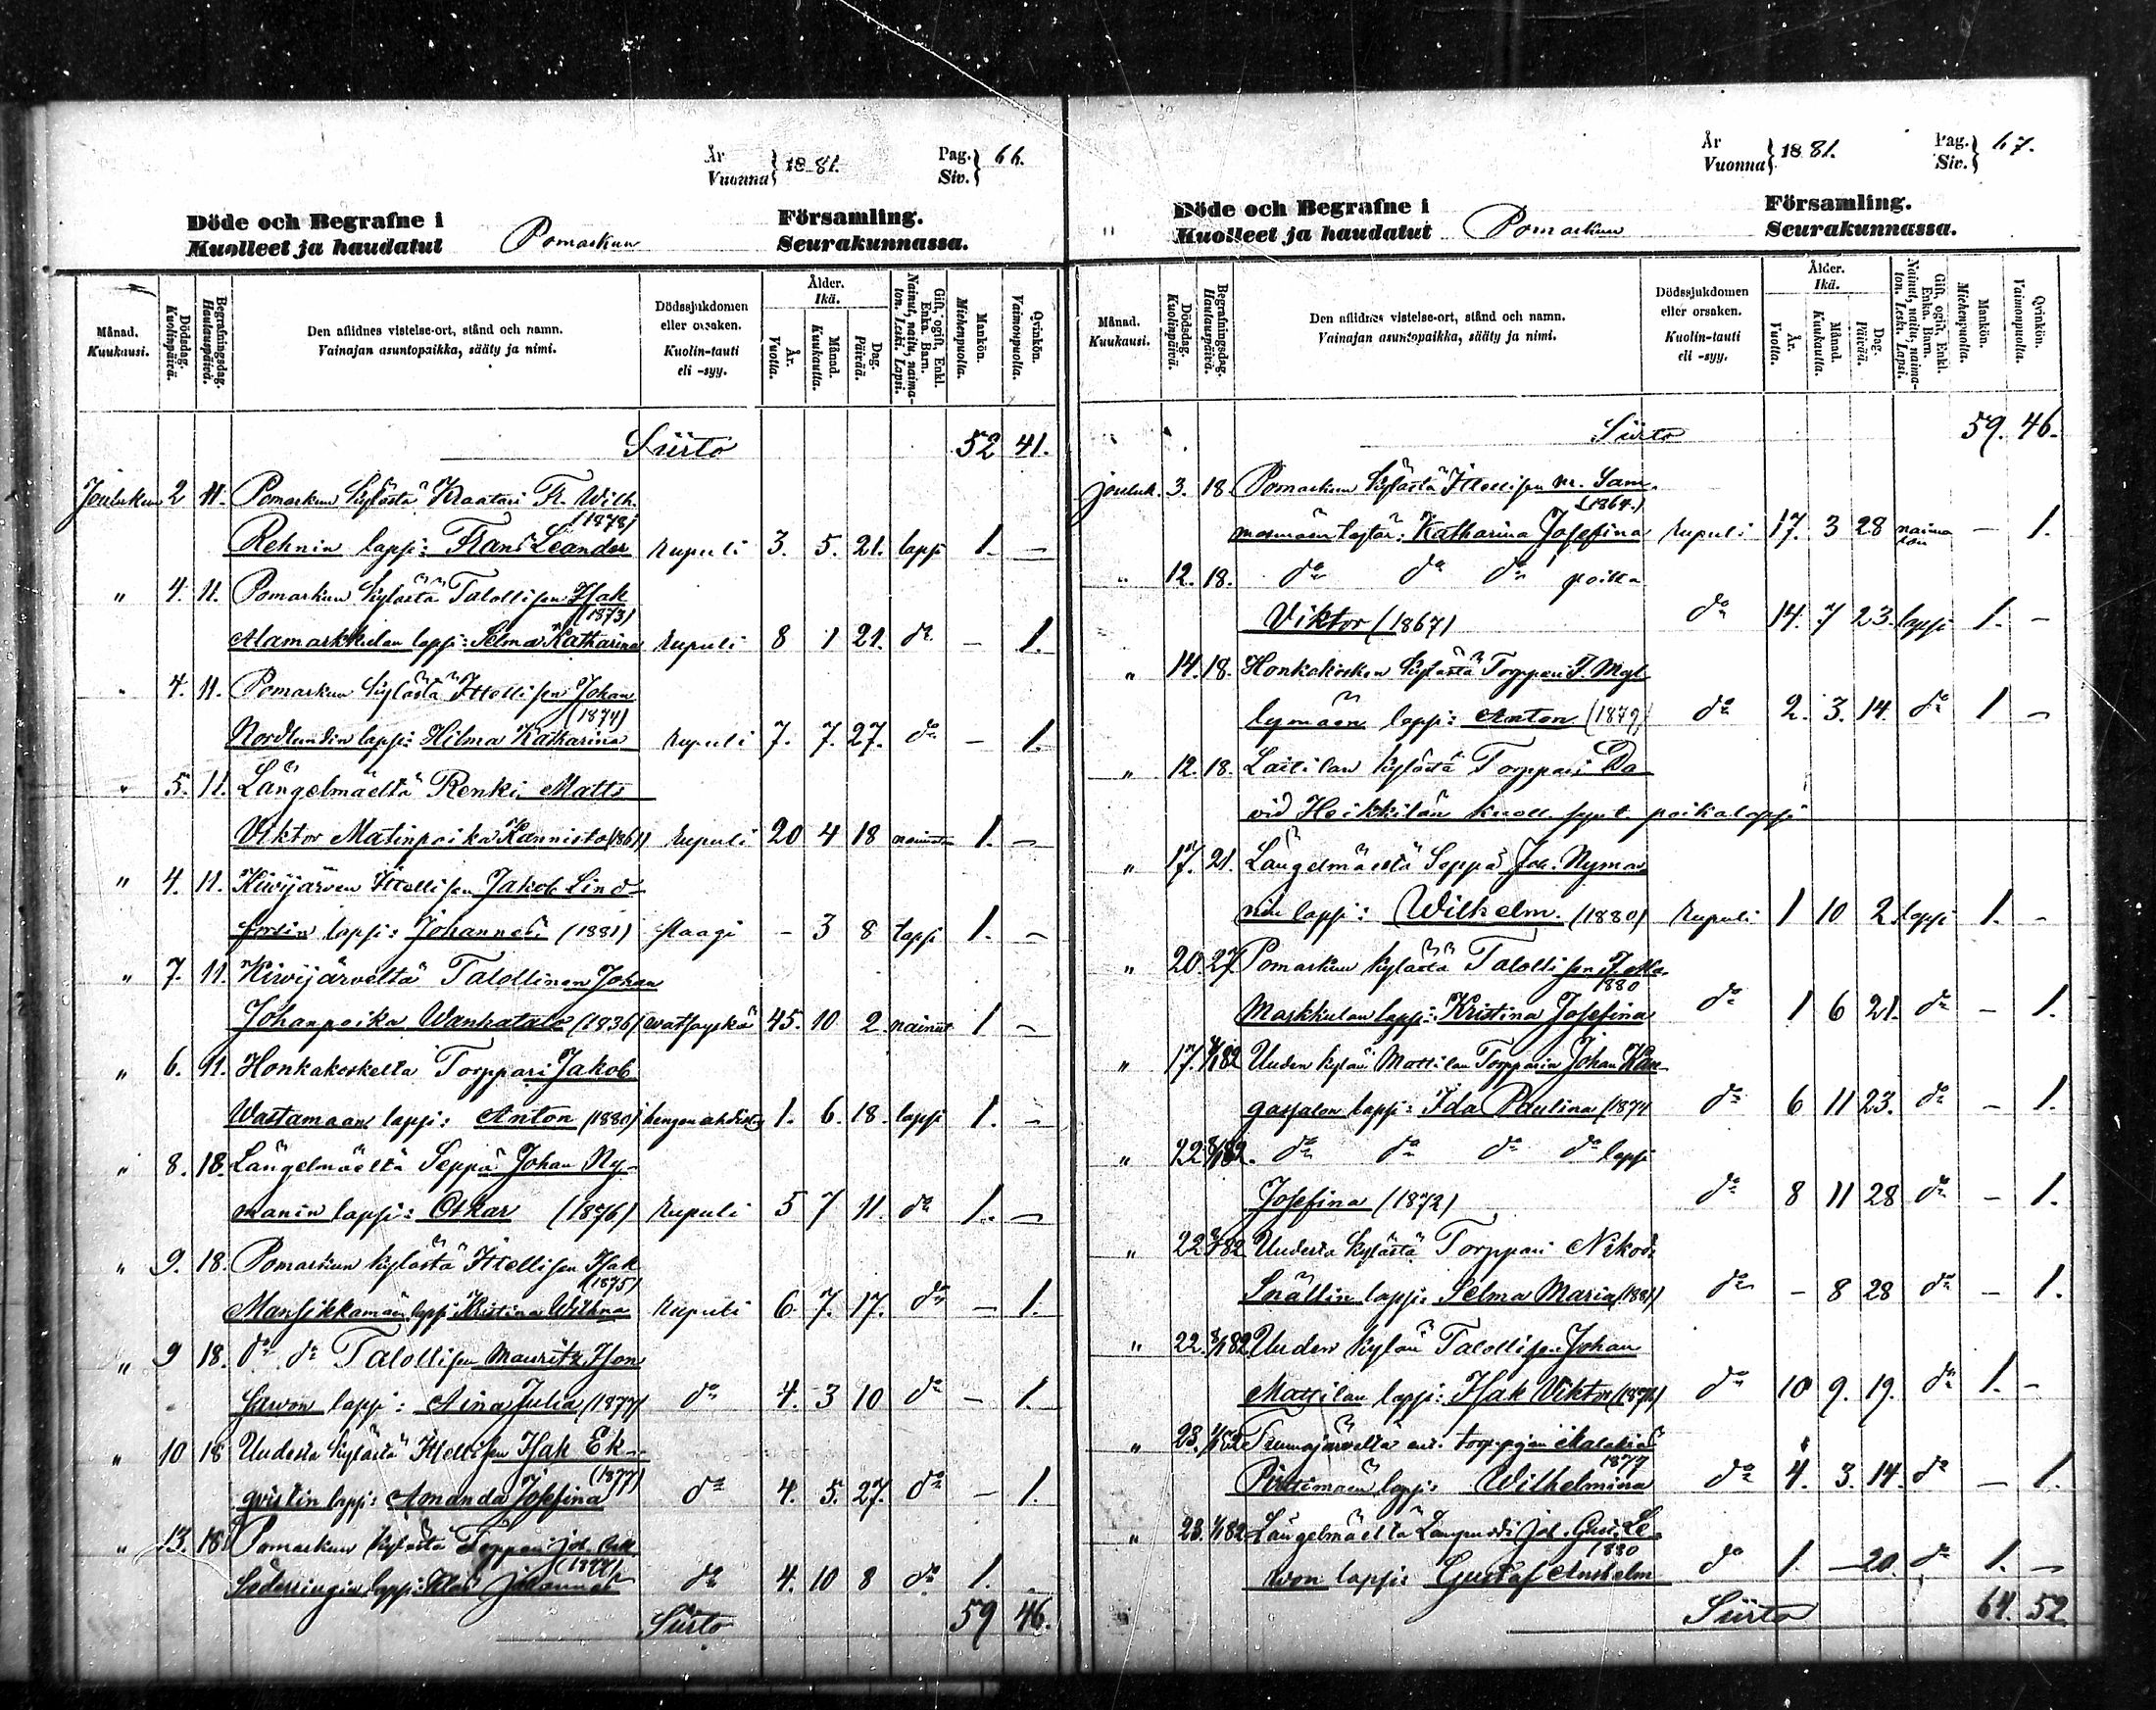 År Vuonna } 1881. Pag. Siv. } 66.
Döde och Begrafne i Församling.
Kuolleet ja haudatut Pomarkun Seurakunnassa.
Månad. Kuukausi. Dödsdag. Kuolinpäivä. Begrafningsdag. Hautauspäivä. Den aflidnes vistelse-ort, stånd och namn. Vainajan asuntopaikka, sääty ja nimi. Dödssjukdomen eller orsaken. Kuolin-tauti eli -syy. Ålder. Ikä. År. Vuotta. Månad. Kuukautta. Dag. Päivää. Gift, ogift. Enkl. Enka. Barn. Nainut, naitu, naimaton. Leski. Lapsi. Mankön. Miehenpuolta. Qvinkön. Vaimonpuolta.
Siirto 52 41.
Joulukun 2 11. Pomarkun kylästä Kraatari Fr. Wilh.
(1878)
Rehnin lapsi: Frans Leander rupuli 3. 5. 21. lapsi 1. —
" 4. 11. Pomarkun kylästä Talollisen Isak
(1873)
Alamarkkulan lapsi: Selma Katharina rupuli 8 1 21. do — 1.
" 4. 11. Pomarkun kylästä Itsellisen Johan
(1874)
Nordlundin lapsi: Hilma Katharina rupuli 7. 7. 27. do — 1.
" 5. 11. Längelmäeltä Renki Matts
Viktor Matinpoika Kannisto (1861) rupuli 20 4 18 naimaton 1. —
" 4. 11. Kiwijärven Itsellisen Jakob Lind-
forsin lapsi: Johannes (1881) slaagi — 3 8 lapsi 1. —
" 7. 11. Kiwijärveltä Talollinen Johan
Johanpoika Wanhatalo (1836) watsayskä 45. 10 2. nainut 1 —
" 6. 11. Honkakoskelta Torppari Jakob
Wastamaan lapsi: Anton (1880) hengenahdistus 1. 6. 18. lapsi 1. —
" 8. 18. Längelmäeltä Seppä Johan Ny-
manin lapsi: Oskar (1876) rupuli 5 7 11. do 1. —
" 9. 18. Pomarkun kylästä Itsellisen Isak
(1875)
Mansikkamäen lapsi Kristina Wilhna rupuli 6. 7. 17. do — 1.
" 9 18. do do Talollisen Mauritz Ison
Sawon lapsi: Aina Julia (1877) do 4. 3 10 do — 1.
" 10 18 Uudesta kylästä Itsellisen Isak Ek-
(1877)
qvistin lapsi: Amanda Josefina do 4. 5. 27. do — 1.
" 13. 18. Pomarkun kylästä Torppari Joh.
lapsi: Johannes do 4. 10 8 do 1.
Siirto 59 46.
År Vuonna } 1881. Pag. Siv. } 67.
Döde och Begrafne i Församling.
Kuolleet ja haudatut Pomarkun Seurakunnassa.
Månad. Kuukausi. Dödsdag. Kuolinpäivä. Begrafningsdag. Hautauspäivä. Den aflidnes vistelse-ort, stånd och namn. Vainajan asuntopaikka, sääty ja nimi. Dödssjukdomen eller orsaken. Kuolin-tauti eli -syy. Ålder. Ikä. År. Vuotta. Månad. Kuukautta. Dag. Päivää. Gift, ogift. Enkl. Enka. Barn. Nainut, naitu, naimaton. Leski. Lapsi. Mankön. Miehenpuolta. Qvinkön. Vaimonpuolta.
Siirto 59. 46.
Jouluk. 3. 18. Pomarkun kylästä Itsellisen M. Sam-
(1864.)
tytär: Katharina Josefina rupuli 17. 3 28 naimaton — 1.
" 12. 18. do do do poika
Viktor (1867) do 14. 7 23. lapsi 1. —
" 14. 18. Honkakosken kylästä Torppari J. Myl-
lymäen lapsi: Anton (1879) do 2. 3. 14. do 1 —
" 12. 18. Laitilan kylästä Torppari Da-
vid Heikkilän kuoll. synt. poikalapsi
" 17. 21. Längelmäeltä Seppä Joh. Nyman-
nin lapsi: Wilhelm. (1880) rupuli 1 10 2. lapsi 1. —
" 20. 27. Pomarkun kylästä Talollisen J. Ala-
1880
Markkulan lapsi: Kristina Josefina do 1 6 21. do — 1.
" 17. 82 Uuden kylän Mattilan Torpparin Johan Kan-
gassalon lapsi: Ida Paulina (1874 do 6 11 23. do — 1.
" 22 82. do do do do lapsi
Josefina (1872) do 8 11 28 do — 1.
" 22 82 Uudesta kylästä Torppari Nikod:
Snällin lapsi: Selma Maria (1881) do — 8 28 do — 1.
" 22. 82 Uuden kylän Talollisen Johan
Mattilan lapsi: Isak Viktor (1871) do 10 9. 19. do 1. —
" 23. 82 ent. torpparin Malakias
1877
lapsi: Wilhelmina do 4. 3. 14. do — 1.
" 23. 82 Längelmäeltä Lampuodi Joh. Gust. Le-
1880
von lapsi: Gustaf Anshelm do 1. — 20. do 1. —
Siirto 64. 52